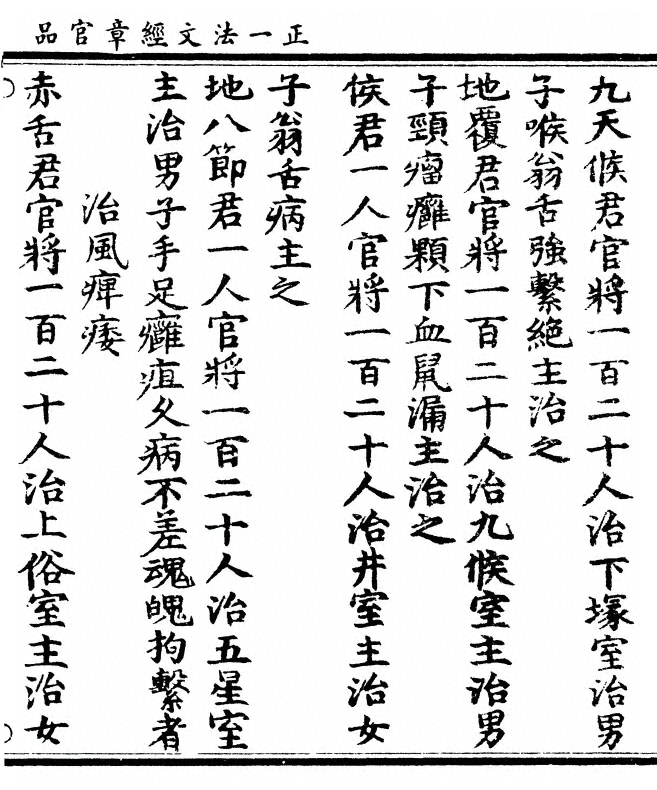 正一法文經章官品
九天候君官將一百二十人治下塚室治男
子喉翁舌強繫絕主治之
地覆君官將一百二十人治九候室主治男
子頸瘤癰顆下血鼠漏主治之
侯君一人官將一百二十人治井室主治女
子翁舌病主之
地八節君一人官將一百二十人治五星室
主治男子手足癰疽久病不差魂魄拘繫者
治風痺痿
赤舌君官將一百二十人治上俗室主治女